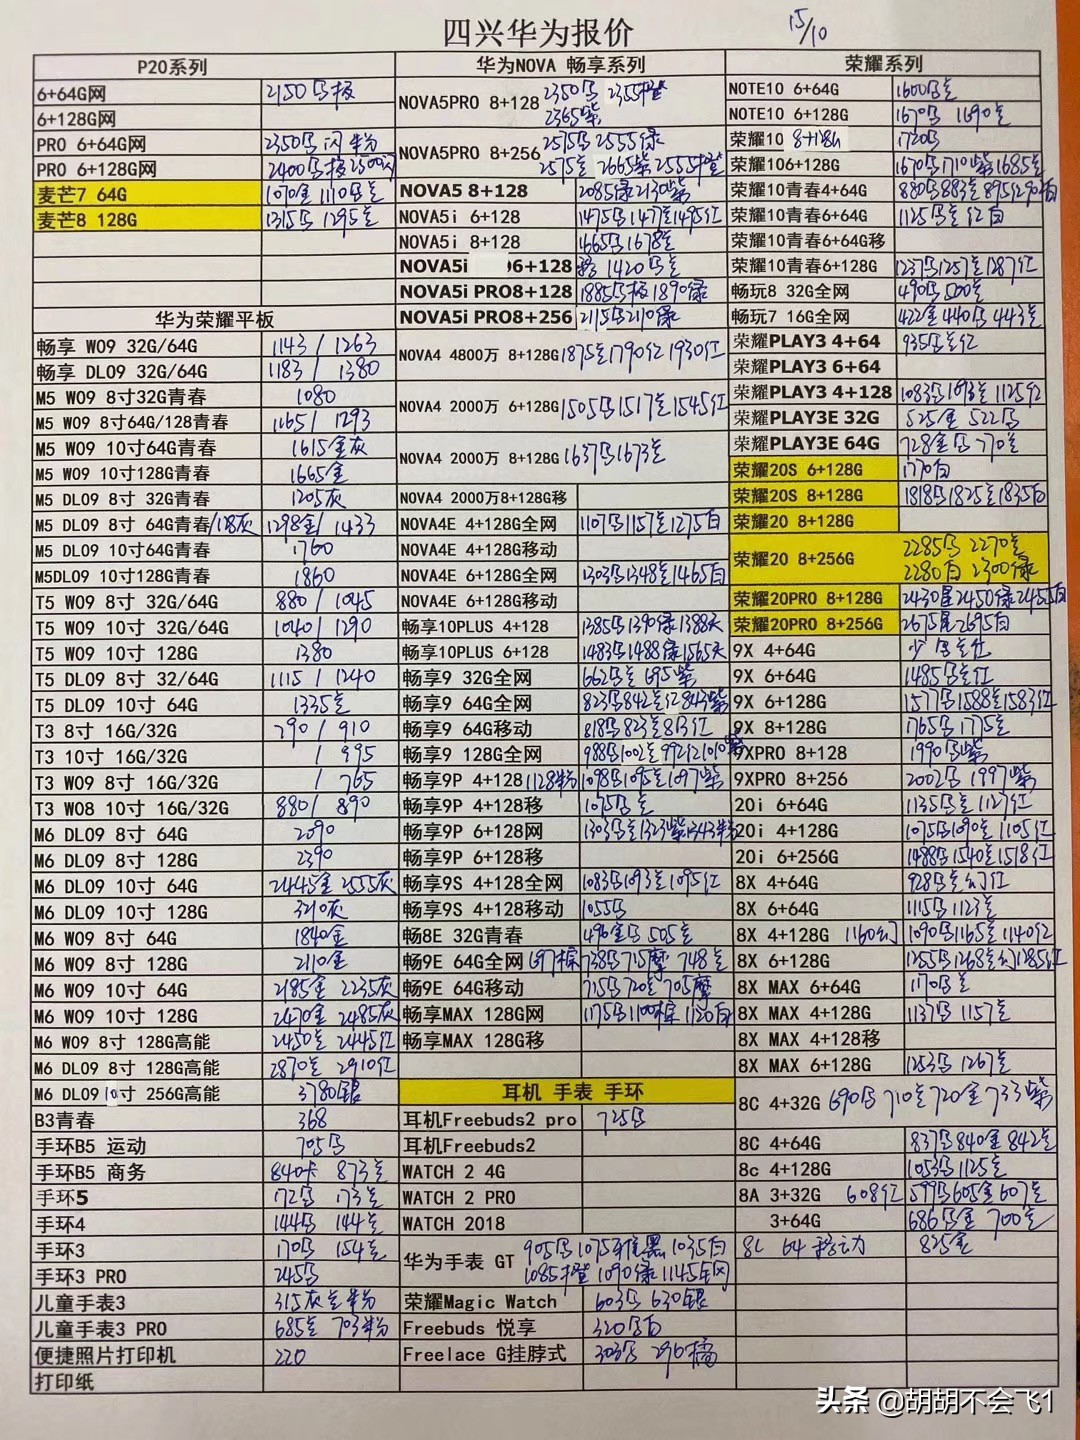 四兴华为报价
15/10
P20系列
6+64G网 2150
6+128G网
PRO 6+64G网 2350
PRO 6+128G网 2400
麦芒7 64G 1070金 1110
麦芒8 128G 1315 1295
华为荣耀平板
畅享 W09 32G/64G 1143 / 1263
畅享 DL09 32G/64G 1183 / 1380
M5 W09 8寸32G青春 1080
M5 W09 8寸64G/128青春 1165 / 1293
M5 W09 10寸64G青春 1615金灰
M5 W09 10寸128G青春 1665金
M5 DL09 8寸 32G青春 1205灰
M5 DL09 8寸 64G青春/128灰 1298金/ 1433
M5 DL09 10寸64G青春 1760
M5DL09 10寸128G青春 1860
T5 W09 8寸 32G/64G 880 / 1045
T5 W09 10寸 32G/64G 1040 / 1290
T5 W09 10寸 128G 1380
T5 DL09 8寸 32/64G 1115 / 1240
T5 DL09 10寸 64G 1335
T3 8寸 16G/32G 790 / 910
T3 10寸 16G/32G / 995
T3 W09 8寸 16G/32G / 765
T3 W08 10寸 16G/32G 880/ 890
M6 DL09 8寸 64G 2090
M6 DL09 8寸 128G 2390
M6 DL09 10寸 64G 2445金 2555灰
M6 DL09 10寸 128G 3210灰
M6 W09 8寸 64G 1840金
M6 W09 8寸 128G 2110金
M6 W09 10寸 64G 2185金 2235灰
M6 W09 10寸 128G 2470金 2485灰
M6 W09 8寸 128G高能 2450 2445红
M6 DL09 8寸 128G高能 2870 2910红
M6 DL09 10寸 256G高能 3780银
B3青春 368
手环B5 运动 705
手环B5 商务 840卡 873
手环5 172 173
手环4 144 144
手环3 170 154
手环3 PRO 245
儿童手表3 315灰 粉
儿童手表3 PRO 685 703粉
便捷照片打印机 220
打印纸
华为NOVA 畅享系列
NOVA5PRO 8+128 2350 2355橙
2365紫
NOVA5PRO 8+256 2575 2555绿
2575 2665紫 2555橙
NOVA5 8+128 2085绿2130紫
NOVA5i 6+128 1475 1477 1495红
NOVA5i 8+128 1665 1678
NOVA5i 6+128 移 1420
NOVA5i PRO8+128 1885 1890绿
NOVA5i PRO8+256 2115 2110绿
NOVA4 4800万 8+128G 1875 1790红 1930红
NOVA4 2000万 6+128G 1505 1517 1545红
NOVA4 2000万 8+128G 1637 1673
NOVA4 2000万8+128G移
NOVA4E 4+128G全网 1107 1157 1275白
NOVA4E 4+128G移动
NOVA4E 6+128G全网 1303 1348 1465白
NOVA4E 6+128G移动
畅享10PLUS 4+128 1385 1390绿 1388天
畅享10PLUS 6+128 1483 1488绿 1565天
畅享9 32G全网 662 695紫
畅享9 64G全网 823 842 红 843紫
畅享9 64G移动 818 823 813红
畅享9 128G全网 988 1002 992 1010紫
畅享9P 4+128 1128粉 1098 1095 1097紫
畅享9P 4+128移 1075
畅享9P 6+128网 1303 1323紫 1343粉
畅享9P 6+128移
畅享9S 4+128全网 1083 1093 1095红
畅享9S 4+128移动 1055
畅8E 32G青春 496金 505
畅9E 64G全网 697棕 738 715摩 748
畅9E 64G移动 715 720 705摩
畅享MAX 128G网 1175 1100棕 1120白
畅享MAX 128G移
耳机 手表 手环
耳机Freebuds2 pro 725
耳机Freebuds2
WATCH 2 4G
WATCH 2 PRO
WATCH 2018
华为手表 GT 905 1075 黑 1035白
1085橙 1090绿 1145钢
荣耀Magic Watch 603 630银
Freebuds 悦享 320 白
Freelace G挂脖式 303 296橘
荣耀系列
NOTE10 6+64G 1600
NOTE10 6+128G 1670 1690
荣耀10 8+128G 1720
荣耀106+128G 1670 1710紫 1685
荣耀10青春4+64G 880 883 895 白
荣耀10青春6+64G 1125 红白
荣耀10青春6+64G移
荣耀10青春6+128G 1237 1257 1287红
畅玩8 32G全网 490 500
畅玩7 16G全网 422金 440 443
荣耀PLAY3 4+64 935 红
荣耀PLAY3 6+64
荣耀PLAY3 4+128 1083 1093 1125红
荣耀PLAY3E 32G 525金 522
荣耀PLAY3E 64G 728金 770
荣耀20S 6+128G 1770白
荣耀20S 8+128G 1818 1825 1835白
荣耀20 8+128G
荣耀20 8+256G 2285 2270
2280白 2300绿
荣耀20PRO 8+128G 2430 2450绿 2455白
荣耀20PRO 8+256G 2675 2695白
9X 4+64G 少 红
9X 6+64G 1485 红
9X 6+128G 1577 1588 1583红
9X 8+128G 1765 1775
9XPRO 8+128 1990 紫
9XPRO 8+256 2002 1997紫
20i 6+64G 1135 1127红
20i 4+128G 1075 1090 1105红
20i 6+256G 1488 1540 1518红
8X 4+64G 928 幻红
8X 6+64G 1115 1123
8X 4+128G 1160幻 1090 1165 1140红
8X 6+128G 1255 1268 幻1285红
8X MAX 6+64G 1170
8X MAX 4+128G 1137 1157
8X MAX 4+128移
8X MAX 6+128G 1253 1267
8C 4+32G 690 710 720金 733紫
8C 4+64G 837 840金 842
8c 4+128G 1053 1125
8A 3+32G 608红 599 605金 607
3+64G 686 金 700
8C 64 移动 825金
头条 @胡胡不会飞1